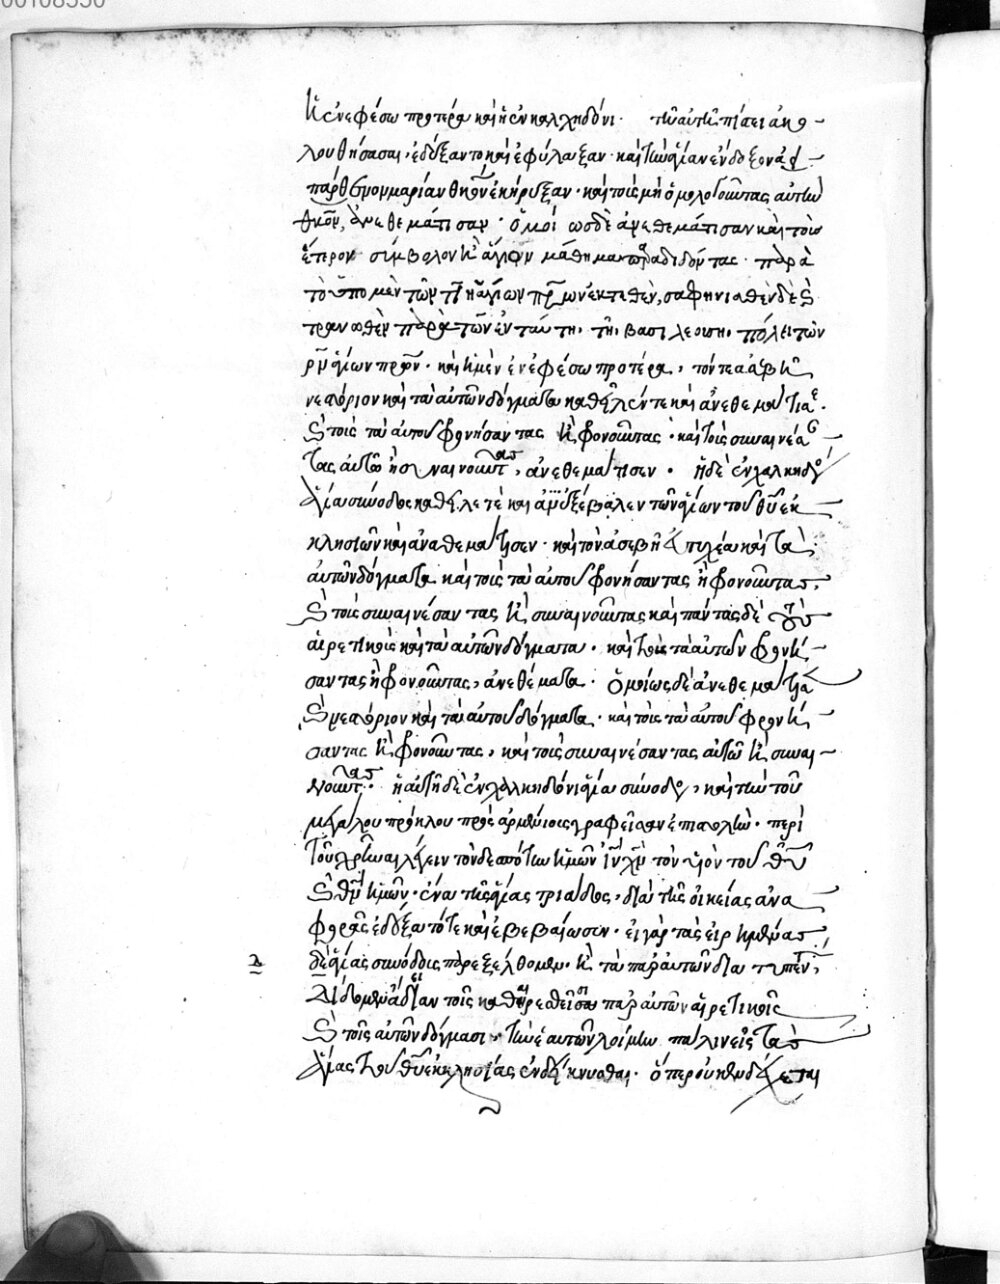 00108550
κ ἐν ἐφέσω προτέρα καὶ ἡ ἐν καλχηδόνι· τῶ αὐτῶ πίστει ἀκο
λουθήσασαι, ἐδέξαντο καὶ ἐφύλαξαν· καὶ τὴν ἁγίαν ἔνδοξον ἀει
παρθένον μαρίαν θκον ἐκήρυξαν· καὶ τοὺς μὴ ὁμολογοῦντας αὐτὴν
θκον, ἀνεθεμάτισαν· ὡσδὲ ἀνεθεμάτισαν καὶ τοὺς
ἕτερον σύμβολον κ ἅγιον μάθημα παραδιδόντας· παρὰ
τὸ ὑπὸ μὲν τῶν τιη ἁγίων πρων ἐκτεθὲν, σαφηνισθὲν δὲ κ
τρανωθὲν παρὰ τῶν ἐν ταύτη, τῆ, βασιλευούση, πόλει τῶν
ρν ἁγίων πρων· καὶ ἡ μὲν ἐν ἐφέσω προτέρα, τόν τε ἀσεβῆ
νεστόριον καὶ τὰ αὐτῶν δόγματα καθεῖλέν τε καὶ ἀνεθεμάτισε·
κ τοὺς τὰ αὐτοῦ φρονήσαντας κ φρονοῦντας· καὶ τοὺς συναινέσα
τας αὐτῶ ἢ συναινοῦντας, ἀνεθεμάτισεν· ἡ δὲ ἐν χαλκηδόνι
ἁγία σύνοδος καθεῖλέ τε καὶ ἐξέβαλεν τῶν ἁγίων τοῦ θυ ἐκ
κλησιῶν καὶ ἀναθεμάτισεν· καὶ τὸν ἀσεβῆ εὐτυχέα καὶ τὰ
αὐτῶν δόγματα καὶ τοὺς τὰ αὐτοῦ φρονήσαντας ἢ φρονοῦντας,
κ τοὺς συναινέσαντας κ συναινοῦντας καὶ πάντας δὲ τοὺς
αἱρετικοὺς καὶ τὰ αὐτῶν δόγματα· καὶ τοὺς τὰ αὐτῶν φρονή
σαντας ἢ φρονοῦντας, ἀνεθέματισα· ὁμοίως δὲ ἀνεθεμάτισα
κ νεστόριον καὶ τὰ αὐτοῦ δόγματα· καὶ τοὺς τὰ αὐτοῦ φρονή
σαντας κ φρονοῦντας, καὶ τοὺς συναινέσαντας αὐτῶ κ συναι
νοῦντας· ἡ αὐτὴ δὲ ἐν χαλκηδόνι ἁγία σύνοδος, καὶ τὴν τοῦ
μεγάλου πρόκλου πρὸς ἀρμενίους γραφεῖσαν ἐπιστολὴν· περὶ
τοῦ χρῆναι λέγειν τὸν δεσπότην ἡμῶν ιν χν τὸν υἱὸν τοῦ θυ
κ θν ἡμῶν· ἕνα τῆς ἁγίας τριάδος, διὰ τῆς οἰκείας ἀνα
φορᾶς ἐδέξατό τε καὶ ἐβεβαίωσεν· εἰ γὰρ τὰς εἰρημένας
δ ἁγίας συνόδους παρεξέλθομεν· κ τὰ παρ αὐτῶν διατυπωθέν,
δίδομεν ἄδειαν τοῖς καθαιρεθεῖσι παρ αὐτῶν αἱρετικοῖς
κ τοῖς αὐτῶν δόγμασι, τὴν ἑαυτῶν λοίμην πάλιν εἰς τὰς
ἁγίας τοῦ θυ ἐκκλησίας ἐνδείκνυσθαι· ὅπερ οὐκ ἐνδέχεται